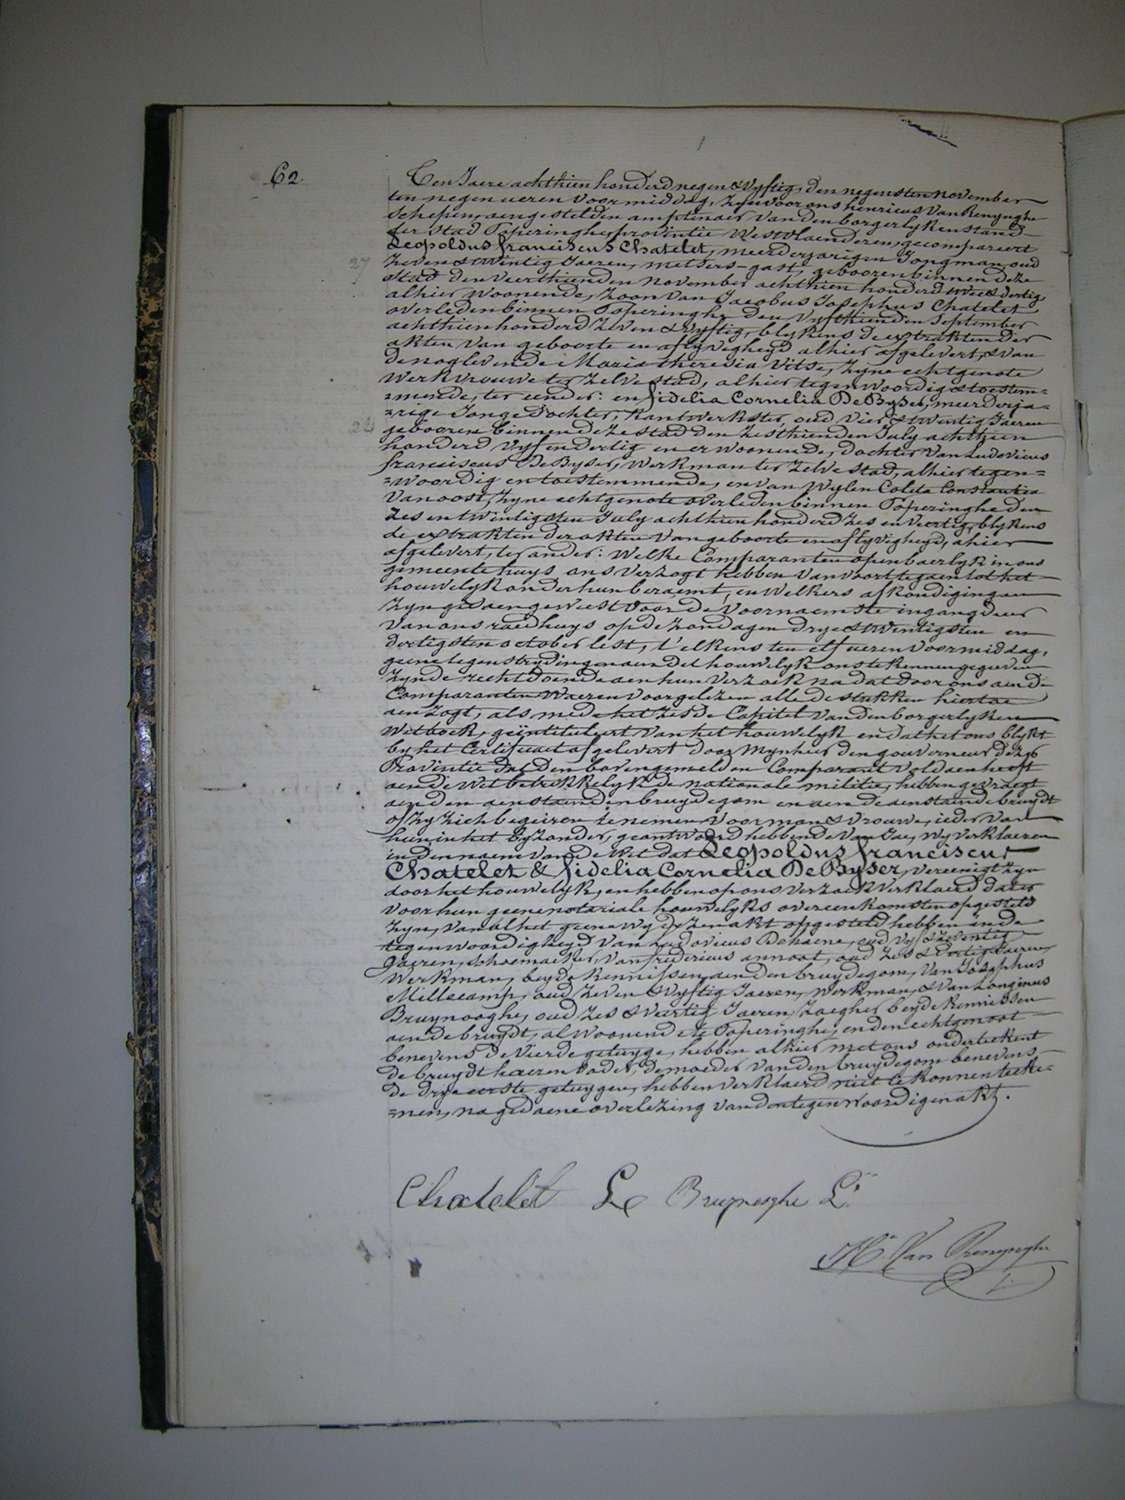 62.
Ten Jaere achthien honderd negen & vyftig, den negensten november
ten negen ueren voormiddag, zyn voor ons henricus Van Renynghe
Schepen, aengestelden amptenaer van den borgerlyken stand
der Stad Poperinghe, provintie Westvlaenderen, gecompareert
Leopoldus franciscus Chatelet, meerderjarigen Jongman, oud
27 zeven & twintig Jaeren, metsers-gast, geboozen binnen deze
Stad den veerthienden november achthien honderd twee & dertig
alhier woonende, zoon van Jacobus Josephus Chatelet
overleden binnen Poperinghe den vyfthienden September
achthien honderd zeven & vyftig, blykens de extrakten der
akten van geboorte en aflyvigheyd alhier afgelevert, & van
de nog levende Maria theresia Vitse, zyne echtgenote
werkvrouwe ter zelve stad, alhier tegenwoordig & toestem=
=mende, ter eender: en fidelia Cornelia De Byser, meerderja=
=rige Jonge Dochter, kantwerkster, oud vier & twintig Jaeren
24 geboozen binnen deze stad den zesthienden July achthien
honderd vyf en dertig en er woonende, dochter van Ludovicus
franciscus De Byser, werkman ter zelve stad, alhier tegen=
=woordig en toestemmende, en van wylen Coleta Constantia
Vanoost, zyne echtgenote overleden binnen Poperinghe den
zes en twintigsten July achthien honderd zes en veertig, blykens
de extrakten der akten van geboorte en aflyvigheyd, alhier
afgelevert, ter ander: Welke Comparanten openbaerlyk in ons
gemeente huys ons verzogt hebben van voort te gaen tot het
houwelyk onder hun beraemt, en welkers afkondigingen
zyn gedaen geweest voor de voornaemste ingang deur
van ons raedhuys op de zondagen drye & twintigsten en
dertigsten october lest, t'elkens ten elf ueren voormiddag,
geene tegenstrydingen aen det houwelyk ons te kennen gegeven
zynde recht doende aen hun verzoek na dat door ons aen de
Comparanten weeren voorgelezen alle de stukken hiertoe
aenzogt, als mede het zesde Capitel van den borgerlyken
Wetboek, geïntituleert van het houwelyk en dat het ons blykt
by het Certificaet afgelevert door Mynheer den gouverneur dezer
Provintie dat den bovengemelden Comparant voldaen heeft
aen de Wet betrekkelyk de nationale militie, hebben gevraegt
aen den aenstaenden bruydegom en aen de aenstaende bruydt
of zy zich begeiren te nemen voor man & vrouwe, ieder van
hun in het byzonder, geantwoord hebbende van Jae, wy verklaeren
in den naem van de Wet dat Leopoldus franciscus
Chatelet & fidelia Cornelia De Byser, vereenigt zyn
door het houwelyk, en hebben op ons verzoek verklaerd dat er
voor hun geene notariale houwelyks overeenkomsten opgesteld
zyn, van al het geene wy dezen akt opgesteld hebben in de
tegenwoordigheyd van Ludovicus Dehaene, oud vyf & zeventig
Jaeren, schoemaeker, van fredericus annoot, oud zes & dertig Jaeren
Werkman, beyde kennissen aen den bruydegom, van Josephus
Millecamp, oud zeven & vyftig Jaeren, Werkman, & van Longinus
Bruynooghe, oud zes & veertig Jaeren, zaegher, beyde kennissen
aen de bruydt, al woonende te Poperinghe, en den echtgenoot
benevens de vierde getuyge, hebben alhier met ons onderteekent
de bruydt haeren vader, de moeder van den bruydegom benevens
de drye eerste getuygen, hebben verklaerd niet te konnen teeke=
=nen, na gedaene overlezing van den tegenwoordigen akt.
Chatelet Le Bruyneoghe L.
H.^ri Van Renynghe